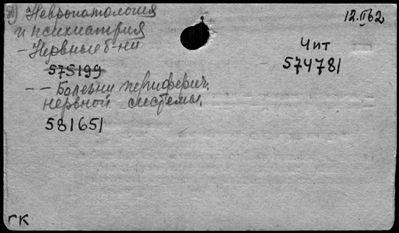 Невропатология
и психиатрия
- Нервные б-ни
575199
- - Болезни периферич.
нервной системы.
581651
12.II 62
Чит
574781
ГК